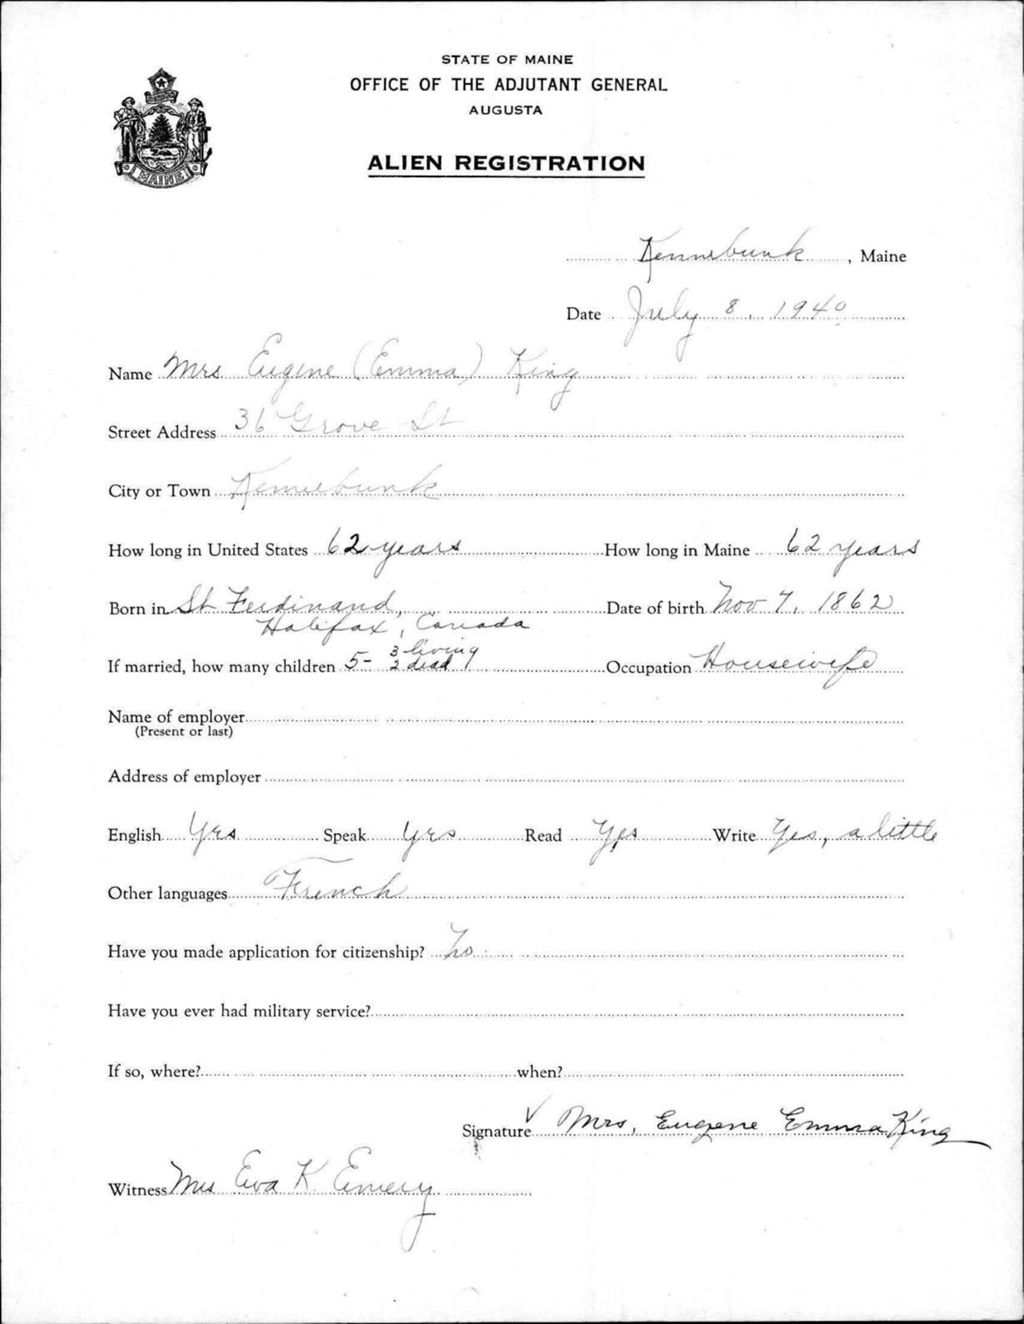 STATE OF MAINE
OFFICE OF THE ADJUTANT GENERAL
AUGUSTA
ALIEN REGISTRATION
MAINE
Kennebunk, Maine
Date July 8, 1940
Name Mrs Eugene (Emma) King
Street Address 36 Grove St
City or Town Kennebunk
How long in United States 62 years How long in Maine 62 years
Born in St Ferdinand, Date of birth Nov 7, 1862
Halifax, Canada
If married, how many children 5- 3 living 2 dead Occupation Housewife
Name of employer
(Present or last)
Address of employer
English Yes Speak Yes Read Yes Write Yes, a little
Other languages French
Have you made application for citizenship? No
Have you ever had military service?
If so, where? when?
Signature Mrs, Eugene Emma King
Witness Mrs Eva K. Emery